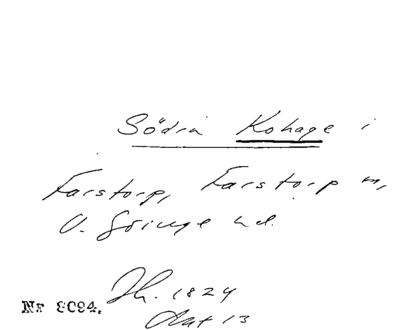 Södra Kohage i
Farstorp, Farstorp sn,
V. Göinge hd.
Jh. 1824
Akt 13
Nr 8094.